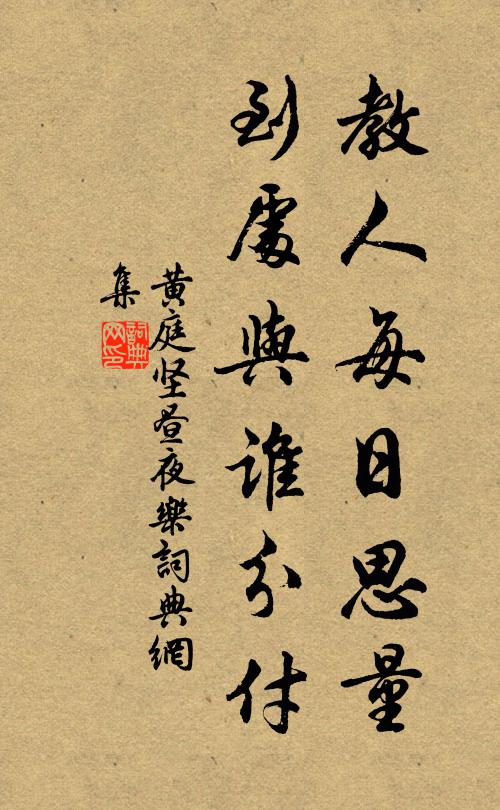 教人每日思量
到處與誰分付
黄庭坚昼夜樂詞典網
集
詞典网印